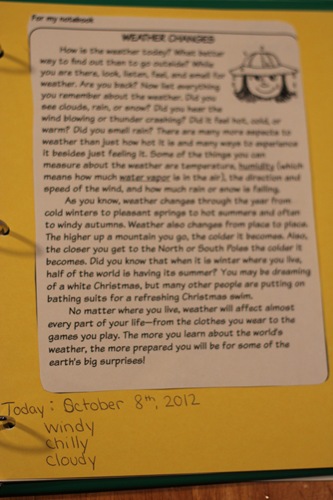 For my notebook
WEATHER CHANGES
How is the weather today? What better
way to find out than to go outside? While
you are there, look, listen, feel, and smell for
weather. Are you back? Now list everything
you remember about the weather. Did you
see clouds, rain, or snow? Did you hear the
wind blowing or thunder crashing? Did it feel hot, cold, or
warm? Did you smell rain? There are many more aspects to
weather than just how hot it is and many ways to experience
it besides just feeling it. Some of the things you can
measure about the weather are temperature, humidity (which
means how much water vapor is in the air), the direction and
speed of the wind, and how much rain or snow is falling.
As you know, weather changes through the year from
cold winters to pleasant springs to hot summers and often
to windy autumns. Weather also changes from place to place.
The higher up a mountain you go, the colder it becomes. Also,
the closer you get to the North or South Poles the colder it
becomes. Did you know that when it is winter where you live,
half of the world is having its summer? You may be dreaming
of a white Christmas, but many other people are putting on
bathing suits for a refreshing Christmas swim.
No matter where you live, weather will affect almost
every part of your life—from the clothes you wear to the
games you play. The more you learn about the world's
weather, the more prepared you will be for some of the
earth's big surprises!
Today: October 8th, 2012
windy
chilly
cloudy